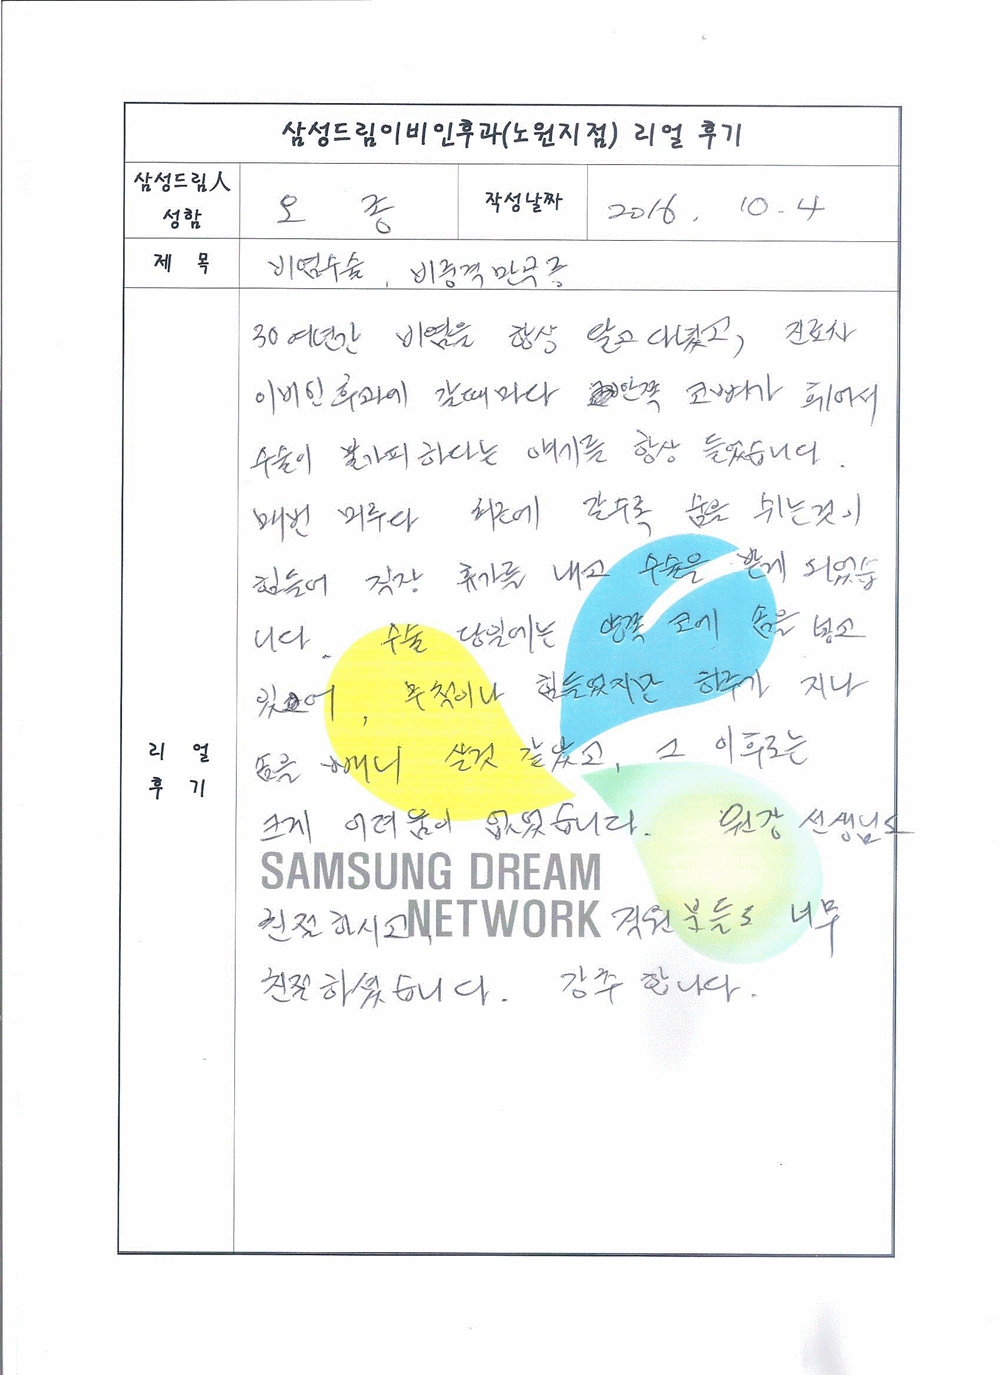 삼성드림이비인후과(노원지점) 리얼 후기
삼성드림人 성함
오 종
작성날짜
2016. 10-4
제 목
비염수술, 비중격만곡증
리 얼 후 기
30여년간 비염을 항상 앓고 다녔고, 진료차
이비인후과에 갈때마다 안쪽 코뼈가 휘어서
수술이 불가피하다는 얘기를 항상 들었습니다.
매번 미루다 최근에 갈수록 숨을 쉬는것이
힘들어 직장 휴가를 내고 수술을 받게 되었습
니다. 수술 당일에는 양쪽 코에 솜을 넣고
있어, 무척이나 힘들었지만 하루가 지나
솜을 빼니 살것 같았고, 그 이후로는
크게 어려움이 없었습니다. 원장 선생님도
SAMSUNG DREAM
NETWORK
친절하시고, 직원분들도 너무
친절하셨습니다. 강추 합니다.